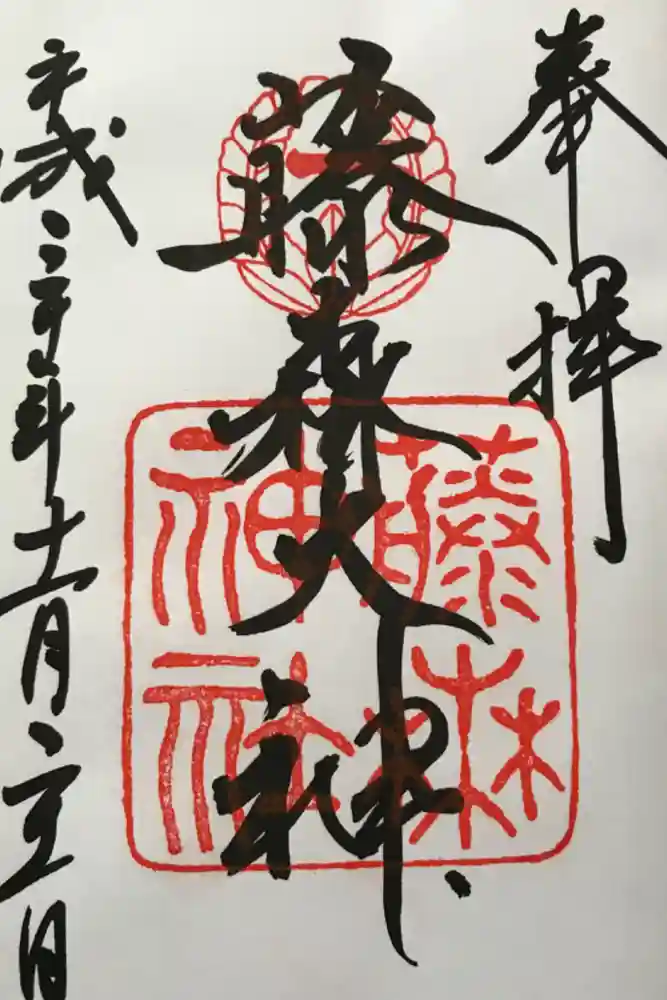 奉拝
藤森大神
藤森神社
平成三十年十一月 日